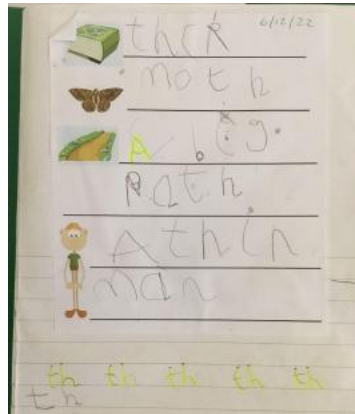 6/12/22
thck
moth
A big.
Path
A thin
man
th th th th th
th